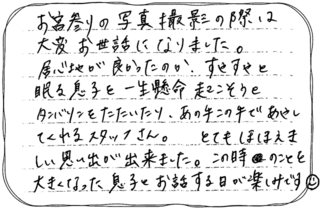 お宮参りの写真撮影の際は
大変お世話になりました。
居心地が良かったのか、すやすやと
眠る息子を一生懸命起こそうと
タンバリンをたたいたり、あの手この手であやし
てくれるスタッフさん。とてもほほえま
しい思い出が出来ました。この時のことを
大きくなった息子とお話する日が楽しみです